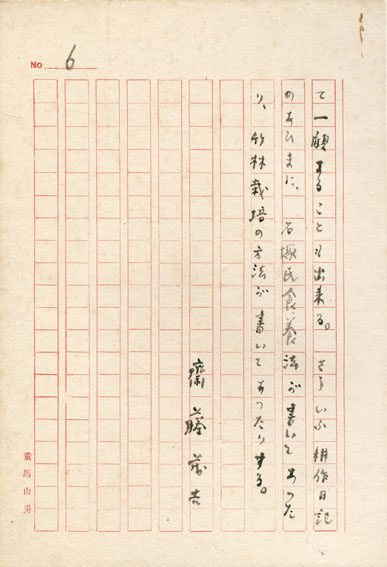 No 6
て一觀することも出来る。さういふ耕作日記
のあひまに、石塚氏食養法が書いてあつた
り、竹林栽培の方法が書いてあつたりする。
齋藤茂吉
童馬山房